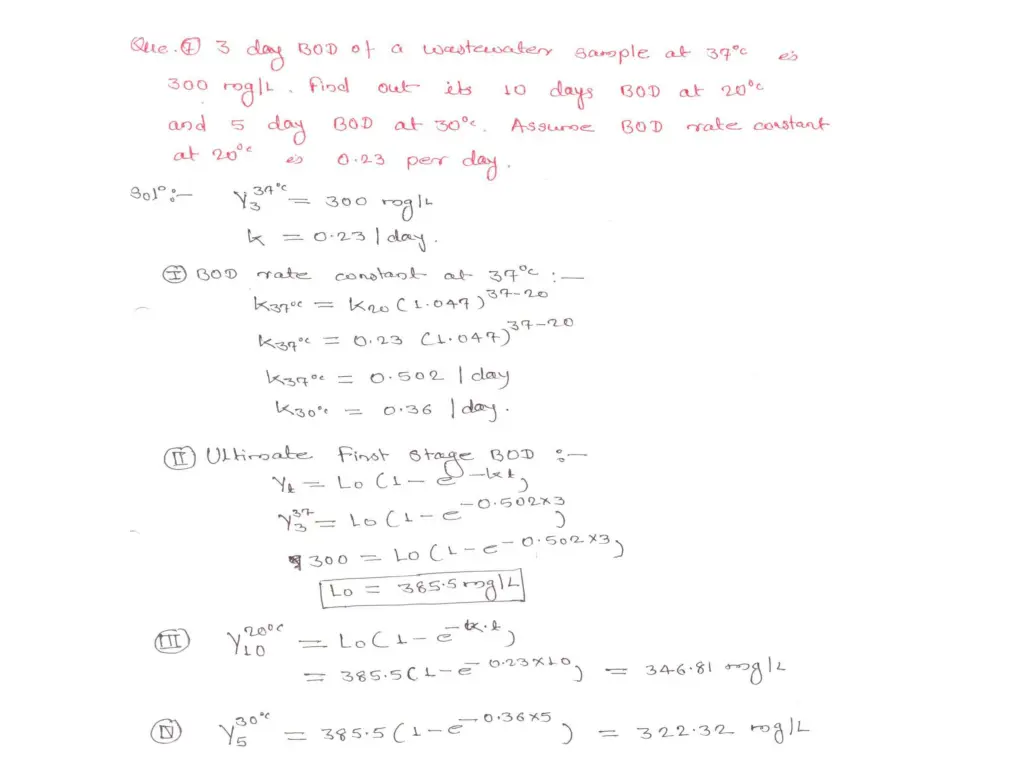 Que. ⑦ 3 day BOD of a wastewater sample at 37°C is
300 mg/L. Find out its 10 days BOD at 20°C
and 5 day BOD at 30°C. Assume BOD rate constant
at 20°C is 0.23 per day.
Solⁿ:- Y₃³⁷°ᶜ = 300 mg/L
k = 0.23 / day.
Ⓘ BOD rate constant at 37°C :-
K₃₇°c = K₂₀ (1.047)³⁷⁻²⁰
K₃₇°c = 0.23 (1.047)³⁷⁻²⁰
K₃₇°c = 0.502 / day
K₃₀°c = 0.36 / day.
(II) Ultimate First Stage BOD :-
Yₜ = Lo (1 - e^-kt)
Y₃³⁷ = Lo (1 - e^-0.502×3)
300 = Lo (1 - e^-0.502×3)
Lo = 385.5 mg/L
(III) Y₁₀²⁰°ᶜ = Lo (1 - e^-k.t)
= 385.5 (1 - e^-0.23×10) = 346.81 mg/L
(IV) Y₅³⁰°ᶜ = 385.5 (1 - e^-0.36×5) = 322.32 mg/L